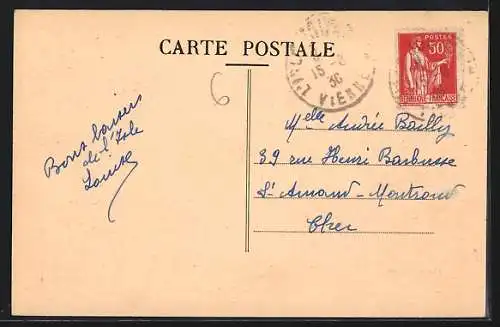 CARTE POSTALE
POSTES
50
REPUBLIQUE FRANÇAISE
15 - 8
36
VIENNE
6
Bons baisers
de l'Isle
Louise
Melle Andrée Bailly
39 rue Henri Barbusse
St Amand-Montrond
Cher